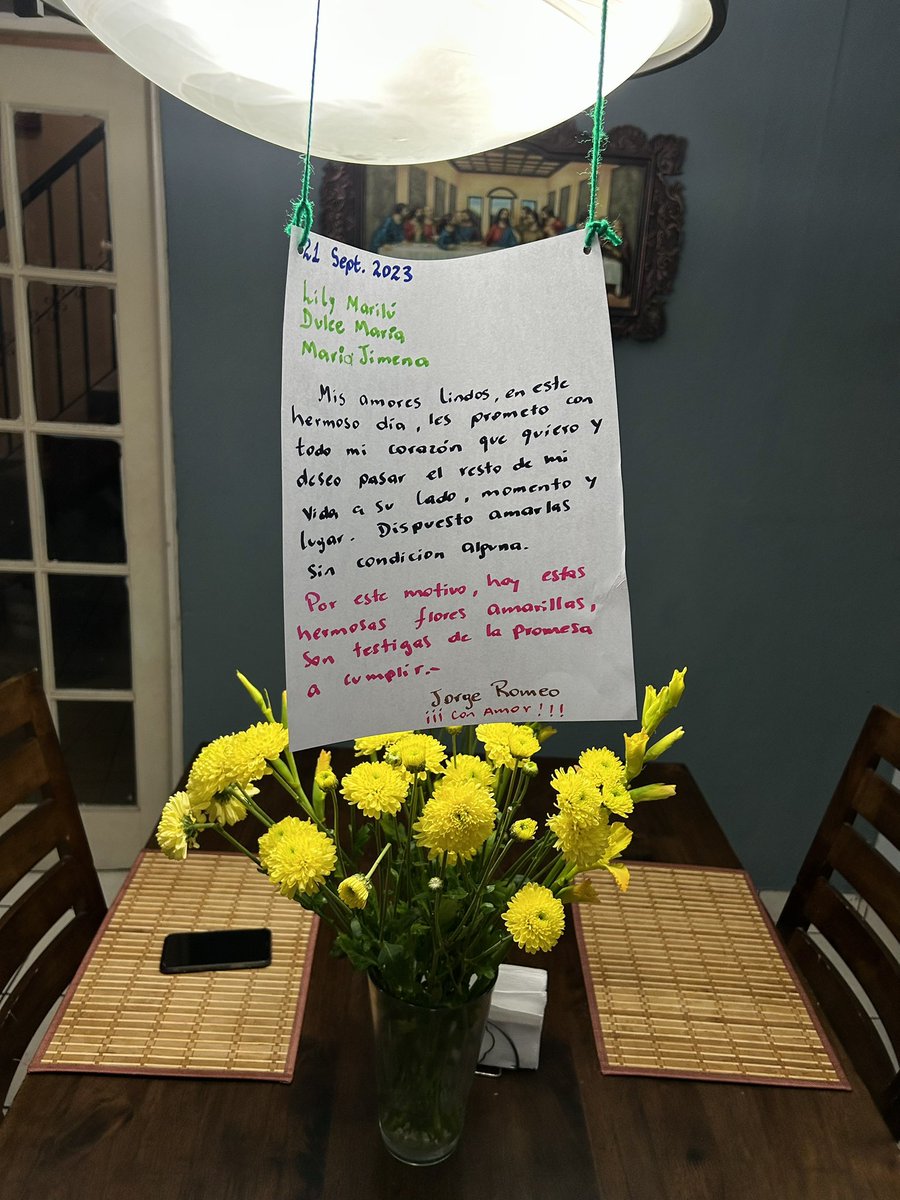 21 Sept. 2023
Lily Marilú
Dulce María
María Jimena
Mis amores lindos, en este
hermoso día, les prometo con
todo mi corazón que quiero y
deseo pasar el resto de mi
vida a su lado, momento y
lugar. Dispuesto amarlas
sin condicion alguna.
Por este motivo, hoy estas
hermosas flores amarillas,
son testigas de la promesa
a cumplir.-
Jorge Romeo
¡¡¡ Con Amor!!!